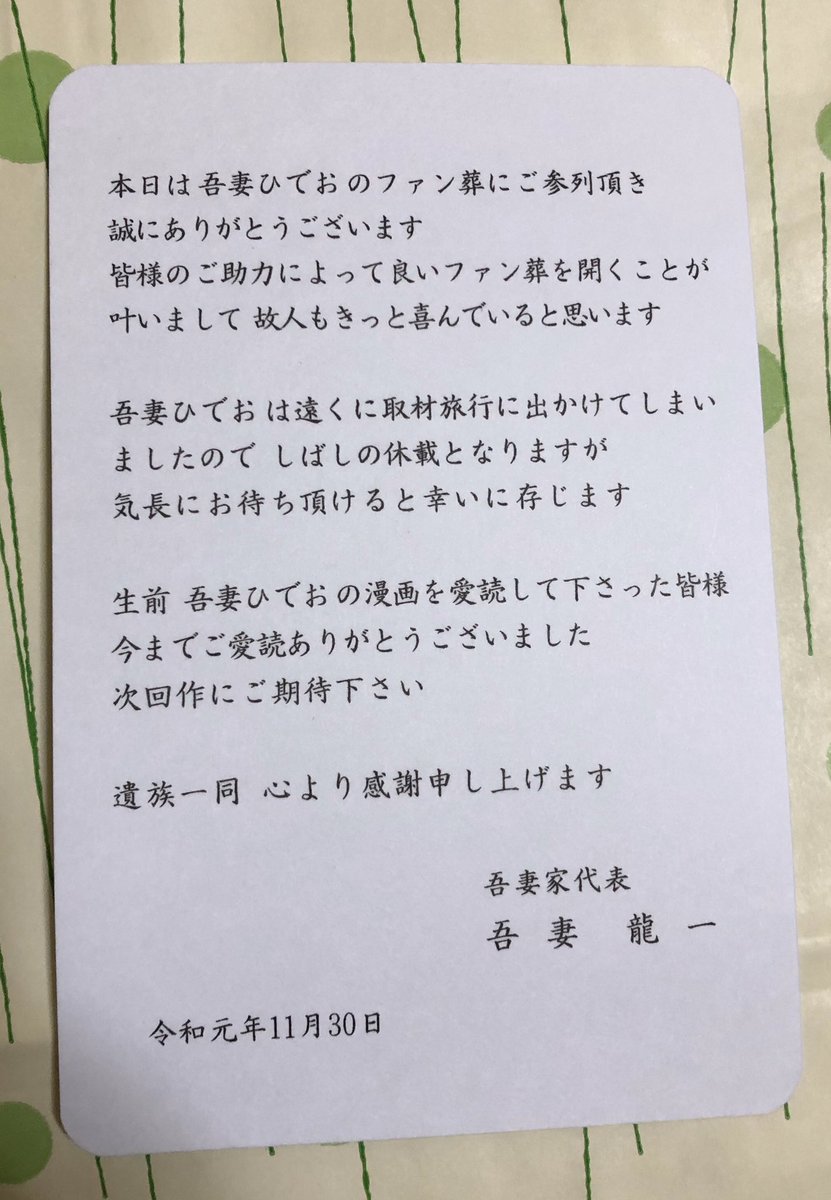 本日は 吾妻ひでお のファン葬にご参列頂き
誠にありがとうございます
皆様のご助力によって良いファン葬を開くことが
叶いまして 故人もきっと喜んでいると思います
吾妻ひでお は遠くに取材旅行に出かけてしまい
ましたので しばしの休載となりますが
気長にお待ち頂けると幸いに存じます
生前 吾妻ひでお の漫画を愛読して下さった皆様
今までご愛読ありがとうございました
次回作にご期待下さい
遺族一同 心より感謝申し上げます
吾妻家代表
吾 妻 龍 一
令和元年11月30日